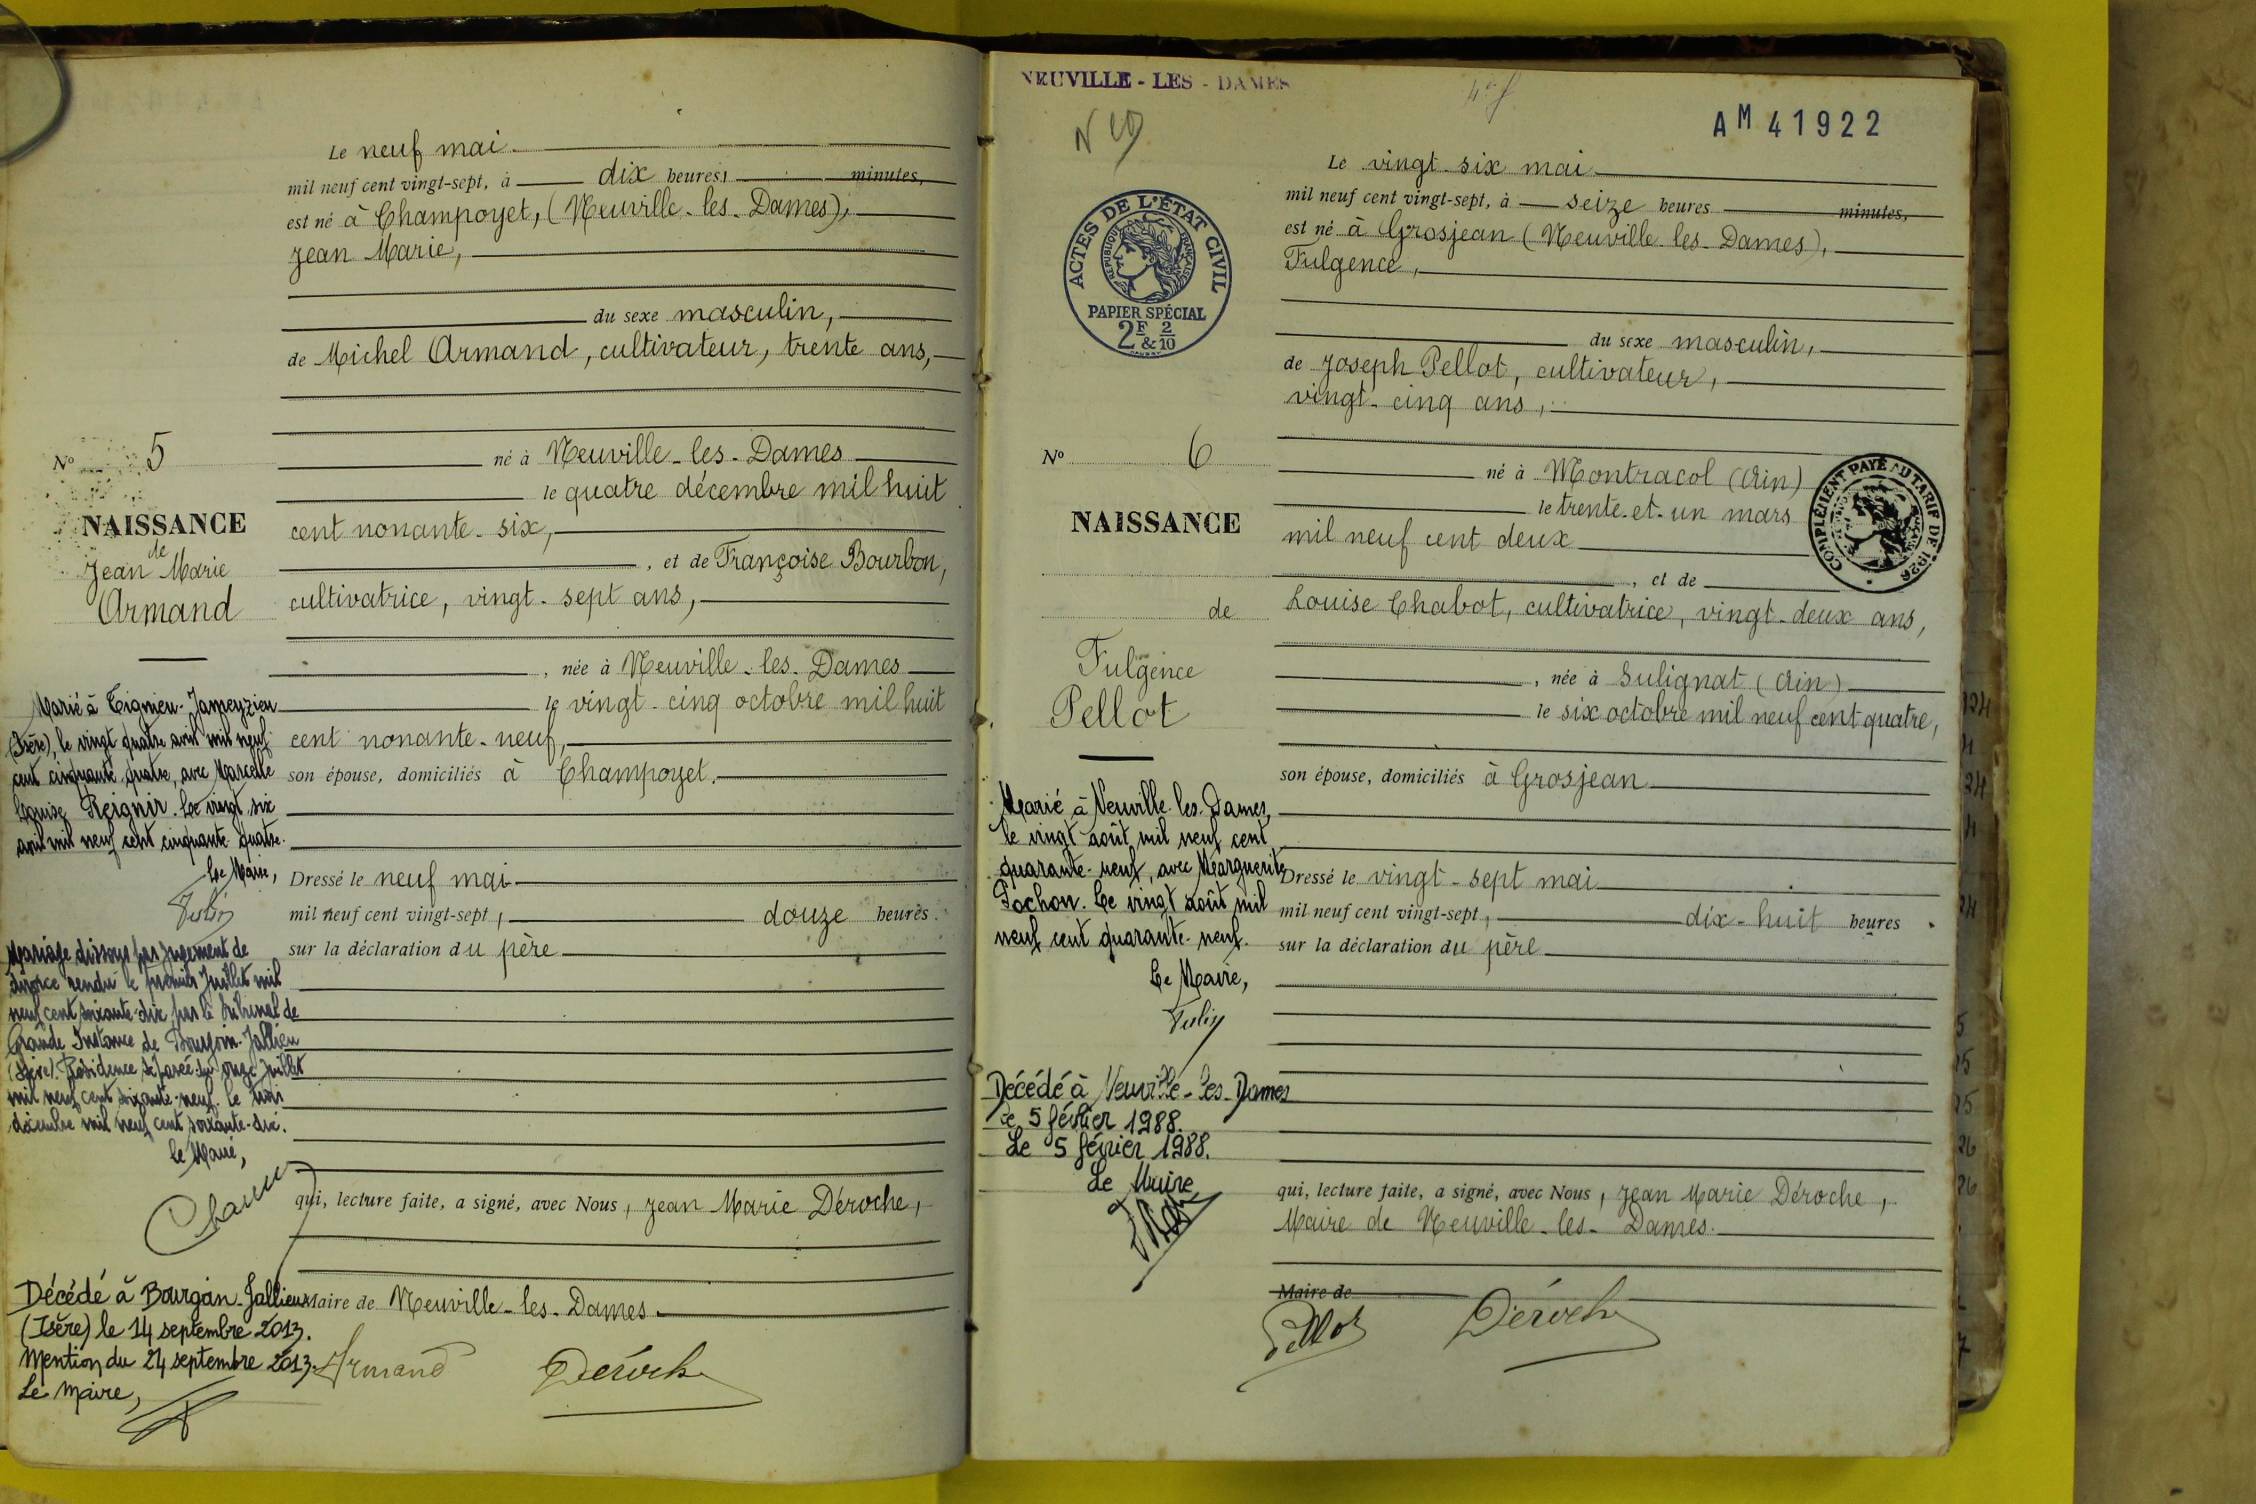 Le neuf mai
mil neuf cent vingt-sept, à dix heures, minutes,
est né à Champoyet, (Neuville-les-Dames),
Jean Marie,
du sexe masculin,
de Michel Armand, cultivateur, trente ans,
né à Neuville-les-Dames
le quatre décembre mil huit
cent nonante-six,
, et de Françoise Bourbon,
cultivatrice, vingt-sept ans,
, née à Neuville-les-Dames
le vingt-cinq octobre mil huit
cent nonante-neuf,
son épouse, domiciliés à Champoyet.
Dressé le neuf mai
mil neuf cent vingt-sept, douze heures
sur la déclaration du père
qui, lecture faite, a signé, avec Nous, Jean Marie Déroche,
Maire de Neuville-les-Dames.
Armand Déroche
No 5
NAISSANCE
de
Jean Marie
Armand
Marié à Tignieu-Jameyzieu
(Isère), le vingt quatre avril mil neuf
cent cinquante quatre, avec Marcelle
Louise Reignir. Le vingt six
avril mil neuf cent cinquante quatre.
Le Maire,
Mariage dissous par jugement de
divorce rendu le premier Juillet mil
neuf cent soixante-dix par le tribunal de
Grande Instance de Bourgoin-Jallieu
(Isère). Résidence séparée du onze Juillet
mil neuf cent soixante-neuf. Le trois
décembre mil neuf cent soixante-dix.
Le Maire,
Décédé à Bourgoin-Jallieu
(Isère) le 14 septembre 2013.
Mention du 24 septembre 2013.
Le Maire,
NEUVILLE - LES - DAMES
AM 41922
ACTES DE L'ÉTAT CIVIL
RÉPUBLIQUE FRANÇAISE
PAPIER SPÉCIAL
2F & 2/10
Le vingt-six mai
mil neuf cent vingt-sept, à seize heures minutes,
est né à Grosjean (Neuville-les-Dames),
Fulgence,
du sexe masculin,
de Joseph Pellot, cultivateur,
vingt-cinq ans,
né à Montracol (Ain)
le trente-et-un mars
mil neuf cent deux
, et de
Louise Chabot, cultivatrice, vingt-deux ans,
, née à Sulignat (Ain)
le six octobre mil neuf cent quatre,
son épouse, domiciliés à Grosjean
Dressé le vingt-sept mai
mil neuf cent vingt-sept, dix-huit heures
sur la déclaration du père
qui, lecture faite, a signé, avec Nous, Jean Marie Déroche,
Maire de Neuville-les-Dames.
Maire de
Pellot Déroche
COMPLÉMENT PAYÉ AU TARIF DE 1926
No 6
NAISSANCE
de
Fulgence
Pellot
Marié à Neuville-les-Dames,
le vingt août mil neuf cent
quarante-neuf, avec Marguerite
Pochon. Le vingt août mil
neuf cent quarante-neuf.
Le Maire,
Décédé à Neuville-les-Dames
le 5 février 1988.
Le 5 février 1988.
Le Maire